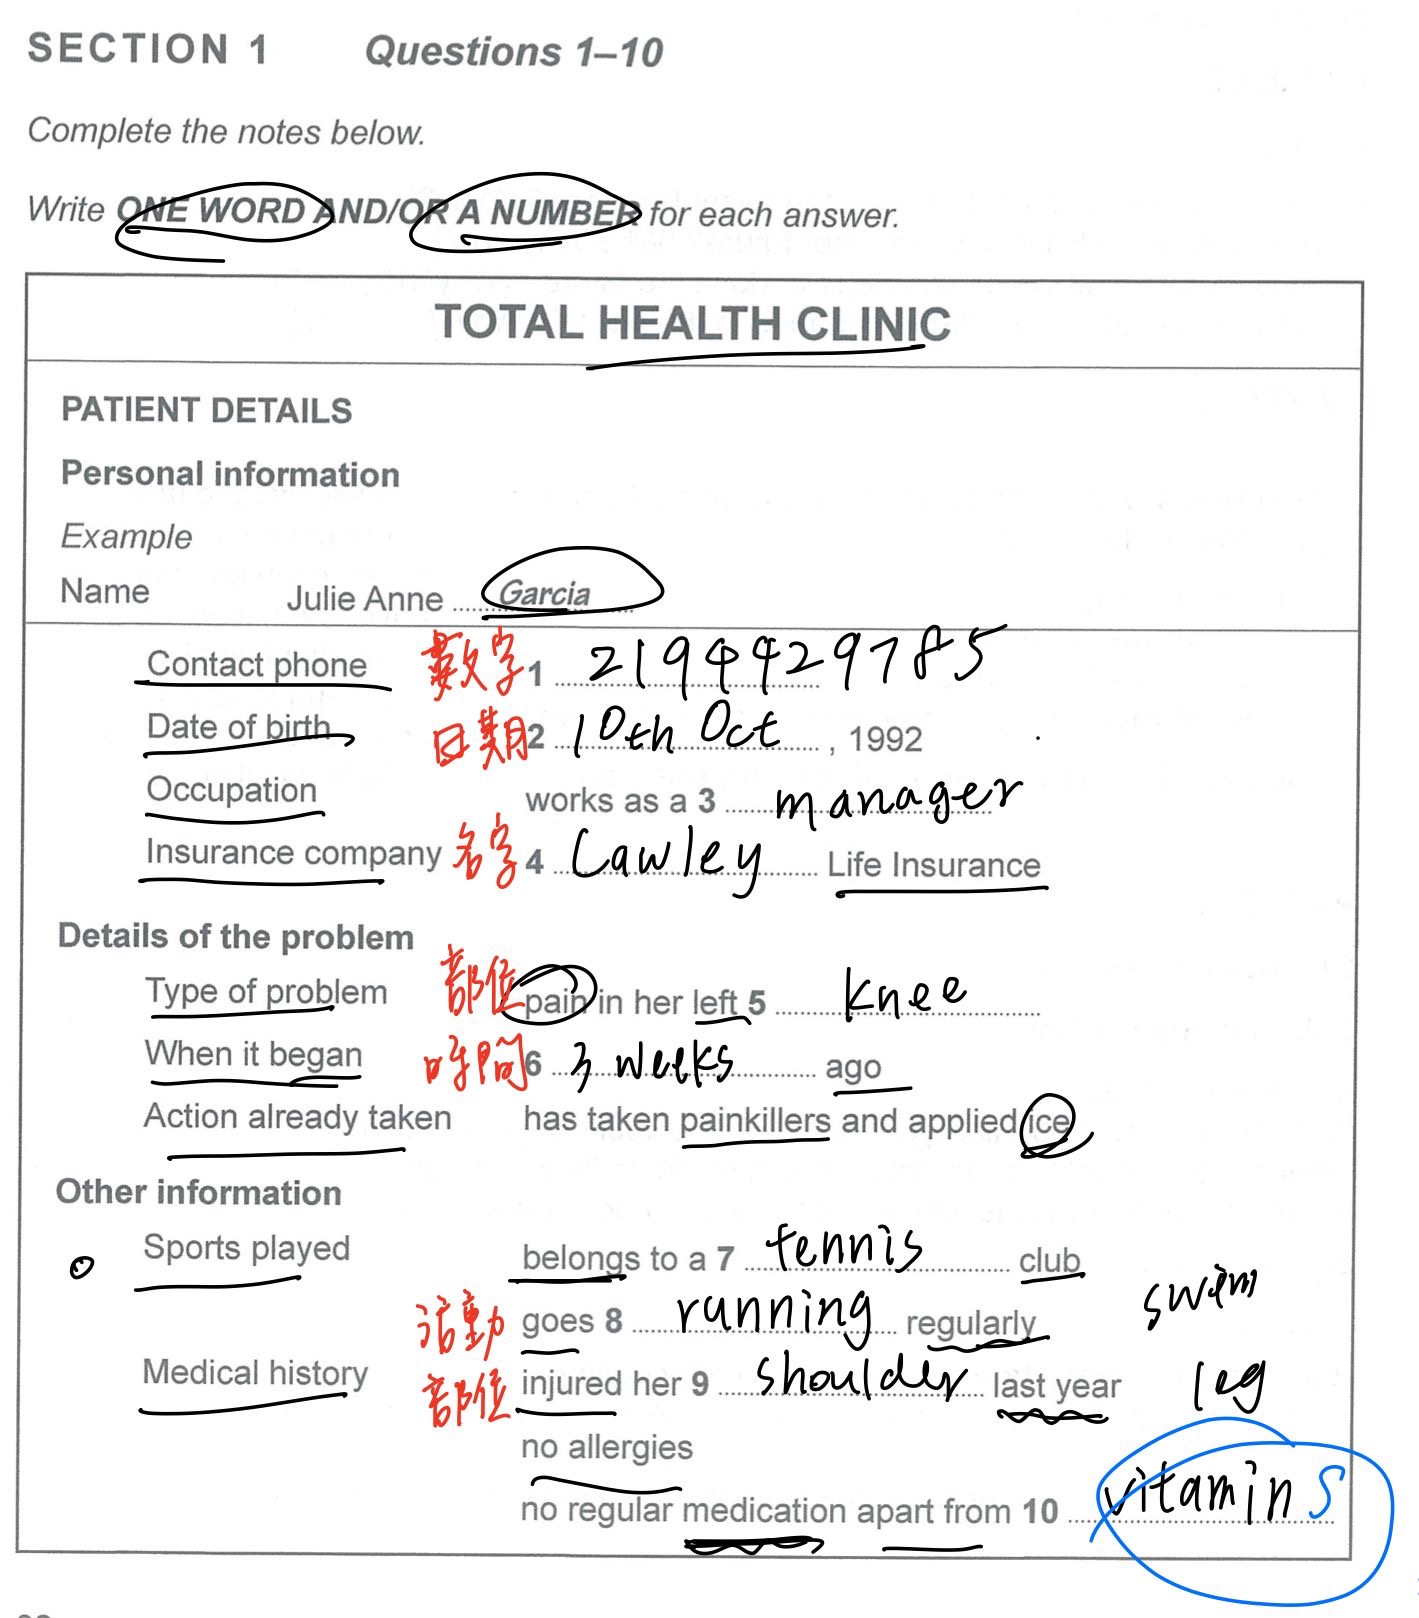 SECTION 1 Questions 1–10
Complete the notes below.
Write ONE WORD AND/OR A NUMBER for each answer.
TOTAL HEALTH CLINIC
PATIENT DETAILS
Personal information
Example
Name Julie Anne Garcia
Contact phone 數字 1 2194429785
Date of birth 日期 2 10th Oct , 1992
Occupation works as a 3 manager
Insurance company 名字 4 Cawley Life Insurance
Details of the problem
Type of problem 部位 pain in her left 5 knee
When it began 時間 6 3 weeks ago
Action already taken has taken painkillers and applied ice
Other information
Sports played belongs to a 7 tennis club
活動 goes 8 running regularly swim
Medical history 部位 injured her 9 shoulder last year leg
no allergies
no regular medication apart from 10 vitamins